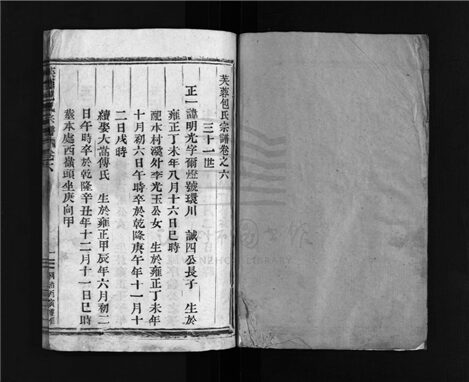 芙蓉包氏宗譜卷之六
三十一世
正一諱明光字爾燈號環川 誠四公長子 生於
雍正丁未年八月十六日巳時
配水村溪外李光玉公女 生於雍正丁未年
十月初六日午時 卒於乾隆庚午年十一月十
二日戌時
續娶大嵩傳氏 生於雍正甲辰年六月初二
日午時卒於乾隆辛丑年十二月十一日巳時
葬本處西嶺頭坐庚向甲